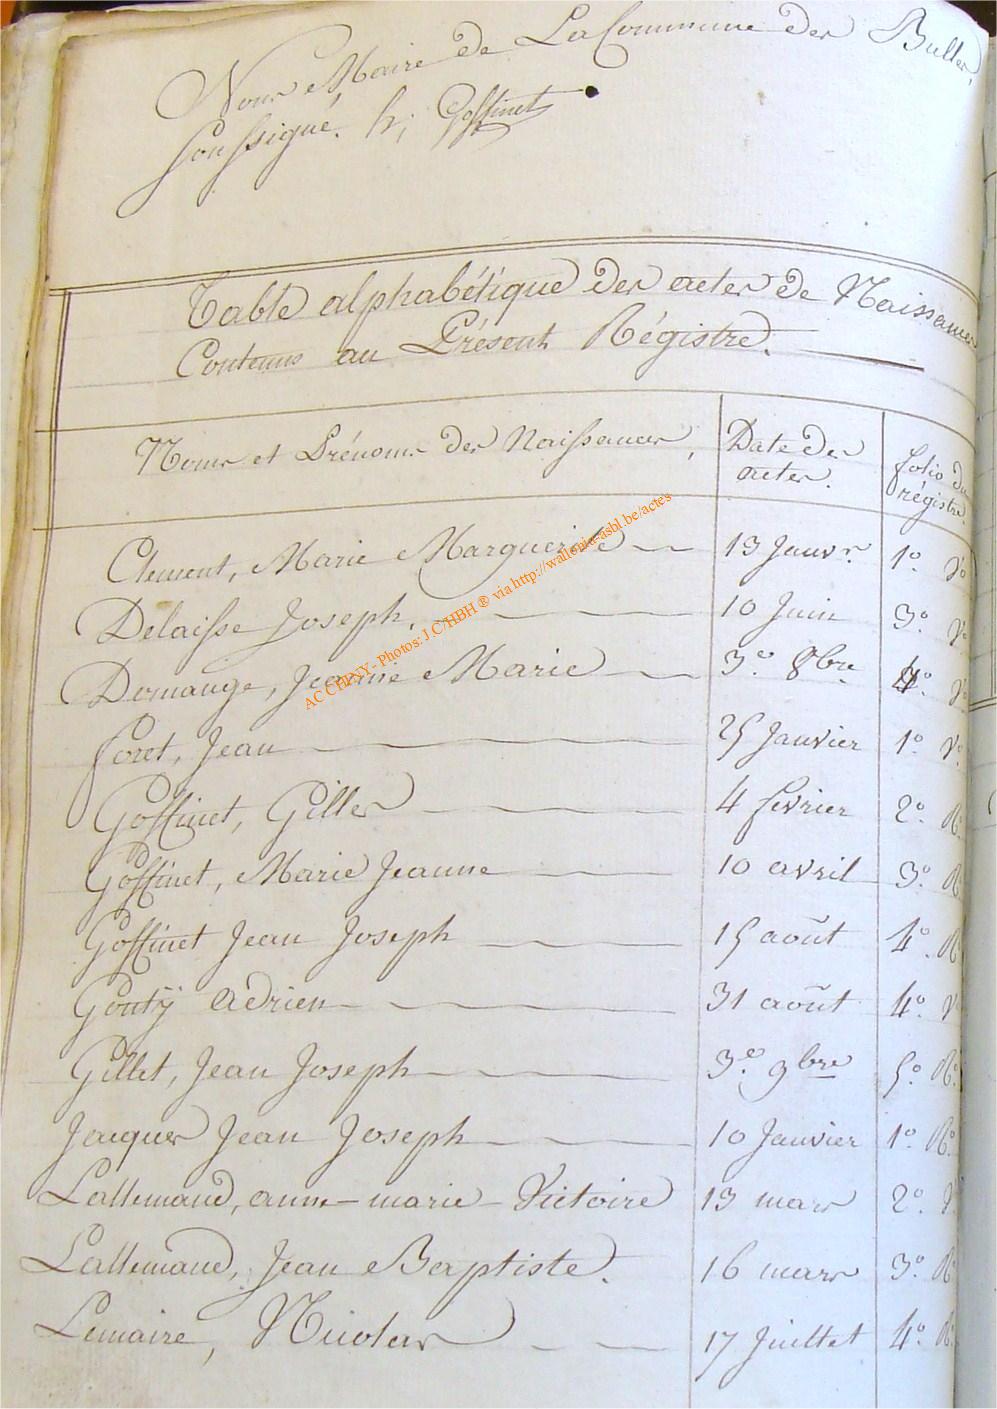 Nous Maire de La Commune des Bulles,
soussigné. h; Goffinet
Table alphabétique des actes de Naissances
Contenus au Présent Régistre.
Noms et Prénoms des Naissances, Date des actes. folio du régistre
Clement, Marie Marguerite 13 Janvr 1º Vº
Delaisse Joseph, 10 Juin 3º Vº
Domange, Jeanne Marie 3e. 8bre 4º. Vº
foret, Jean 25 Janvier 1º Vº
Goffinet, Gilles 4 fevrier 2º. Rº
Goffinet, Marie Jeanne 10 avril 3º. Rº
Goffinet Jean Joseph 15 août 4º. Rº
Goutÿ adrien 31 août 4º. Vº
Gillet, Jean Joseph 3e. 9bre 5º Rº
Jacques Jean Joseph 10 Janvier 1º Rº
Lallemand, anne-marie-Victoire 13 mars 2º. Vº
Lallemand, Jean Baptiste. 16 mars 3º. Rº
Lemaire, Nicolas 17 Juillet 4º. Rº
AC CHINY - Photos: J.C/HBH ® via http://wallonia-asbl.be/actes